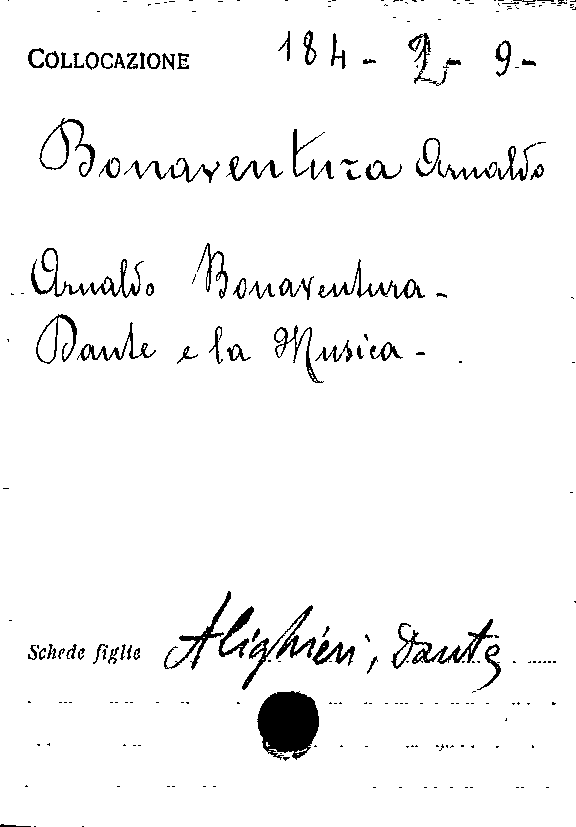 COLLOCAZIONE 184 - 2 - 9 -
Bonaventura Arnaldo
Arnaldo Bonaventura -
Dante e la Musica -
Schede figlie Alighieri, Dante